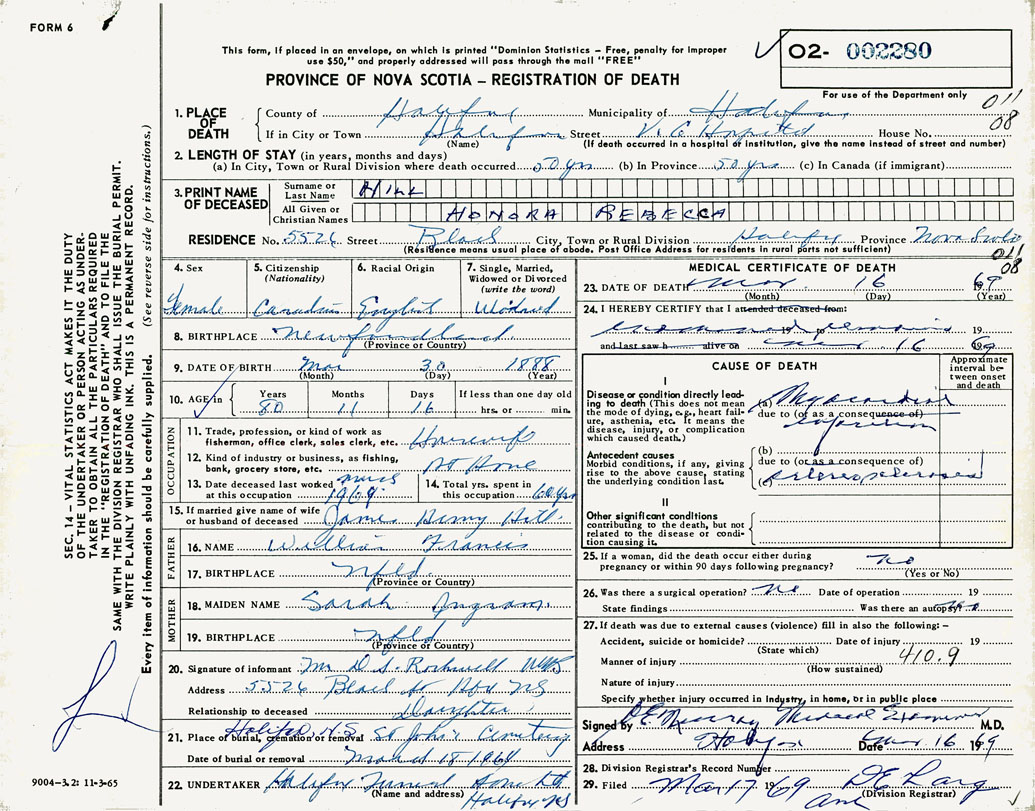 FORM 6
This form, if placed in an envelope, on which is printed "Dominion Statistics – Free, penalty for improper
use $50," and properly addressed will pass through the mail "FREE"
PROVINCE OF NOVA SCOTIA – REGISTRATION OF DEATH
O2- 002280
For use of the Department only
011
08
1. PLACE OF DEATH
County of Halifax Municipality of Halifax
If in City or Town Halifax Street V. G. Hospital House No.
(Name) (If death occurred in a hospital or institution, give the name instead of street and number)
2. LENGTH OF STAY (in years, months and days)
(a) In City, Town or Rural Division where death occurred 50 yrs (b) In Province 50 yrs (c) In Canada (if immigrant)
3. PRINT NAME OF DECEASED
Surname or Last Name HILL
All Given or Christian Names HONORA REBECCA
RESIDENCE No. 5526 Street City, Town or Rural Division Halifax Province Nova Scotia
(Residence means usual place of abode. Post Office Address for residents in rural parts not sufficient)
011
08
4. Sex Female
5. Citizenship (Nationality) Canadian
6. Racial Origin English
7. Single, Married, Widowed or Divorced (write the word) Widowed
8. BIRTHPLACE Newfoundland
(Province or Country)
9. DATE OF BIRTH Mar 30 1888
(Month) (Day) (Year)
10. AGE in Years 80 Months 11 Days 16 If less than one day old hrs. or min.
OCCUPATION
11. Trade, profession, or kind of work as fisherman, office clerk, sales clerk, etc. Housewife
12. Kind of industry or business, as fishing, bank, grocery store, etc. At Home
13. Date deceased last worked at this occupation 1969
14. Total yrs. spent in this occupation 60 yrs
15. If married give name of wife or husband of deceased James Henry Hill
FATHER
16. NAME William Francis
17. BIRTHPLACE Nfld.
(Province or Country)
MOTHER
18. MAIDEN NAME Sarah Ingram
19. BIRTHPLACE Nfld
(Province or Country)
20. Signature of informant D. S. Rockwell
Address 5526 St NS
Relationship to deceased Daughter
21. Place of burial, cremation or removal Halifax N.S. St John's Cemetery
Date of burial or removal March 18 1969
22. UNDERTAKER Halifax Funeral Home Ltd
(Name and address) Halifax NS
MEDICAL CERTIFICATE OF DEATH
23. DATE OF DEATH Mar 16 69
(Month) (Day) (Year)
24. I HEREBY CERTIFY that I attended deceased from:
examined remains 19 to 19
and last saw h alive on Mar 16 69
CAUSE OF DEATH
Approximate interval between onset and death
I
Disease or condition directly leading to death (This does not mean the mode of dying, e.g., heart failure, asthenia, etc. It means the disease, injury, or complication which caused death.)
(a) Myocardial
due to (or as a consequence of)
infarction
Antecedent causes
Morbid conditions, if any, giving rise to the above cause, stating the underlying condition last.
(b)
due to (or as a consequence of)
Arteriosclerosis
II
Other significant conditions
contributing to the death, but not related to the disease or condition causing it.
25. If a woman, did the death occur either during pregnancy or within 90 days following pregnancy? No
(Yes or No)
26. Was there a surgical operation? No Date of operation 19
State findings Was there an autopsy? No
27. If death was due to external causes (violence) fill in also the following: –
Accident, suicide or homicide? Date of injury 19
(State which)
Manner of injury 410.9
(How sustained)
Nature of injury
Specify whether injury occurred in Industry, in home, or in public place
Signed by D E Murray Medical Examiner M.D.
Address Halifax Date Mar 16 1969
28. Division Registrar's Record Number
29. Filed Mar 17 69
(Division Registrar)
SEC. 14 – VITAL STATISTICS ACT MAKES IT THE DUTY
OF THE UNDERTAKER OR PERSON ACTING AS UNDER-
TAKER TO OBTAIN ALL THE PARTICULARS REQUIRED
IN THE "REGISTRATION OF DEATH" AND TO FILE THE
SAME WITH THE DIVISION REGISTRAR WHO SHALL ISSUE THE BURIAL PERMIT.
WRITE PLAINLY WITH UNFADING INK. THIS IS A PERMANENT RECORD.
Every item of information should be carefully supplied. (See reverse side for instructions.)
9004-3.2: 11-3-65